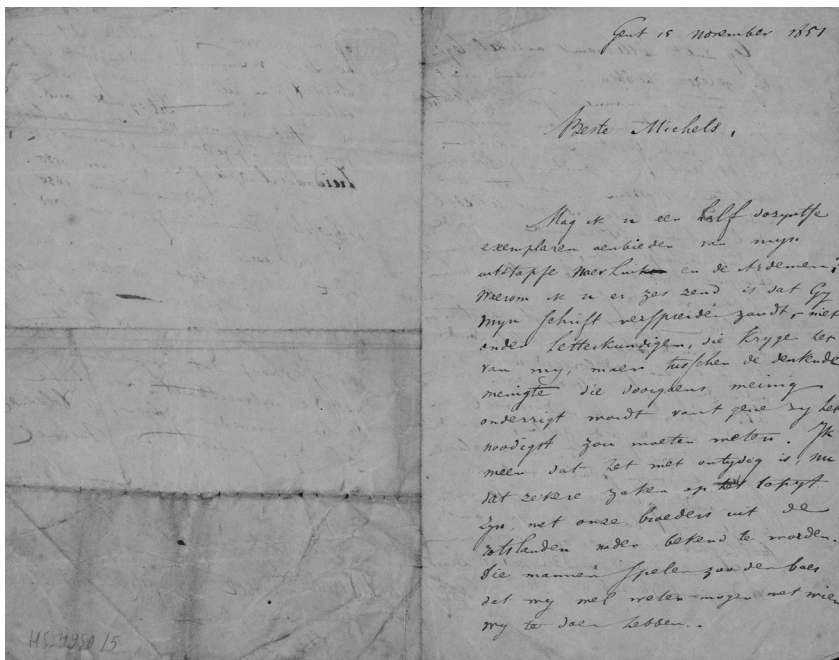 Gent 15 november 1851
Beste Michels,
Mag ik u een half dozyntje
exemplaren aenbieden van myn
uitstapje naer Luik en de Ardennen;
Waerom ik u er zes zend is dat Gy
myn schrift verspreiden zoudt, niet
onder Letterkundigen, die krygen het
van my, maer tusschen de denkende
menigte die doorgaens meinig
onderrigt wordt van 't gene zy het
noodigst zou moeten weten. Ik
meen dat het niet ontydig is, nu
dat zekere zaken op tapyt
zyn, met onze broeders uit de
rotslanden nader bekend te worden.
Die mannen spelen zoo den baes
dat wy wel weten mogen met wien
wy te doen hebben.
HS. 4950/5